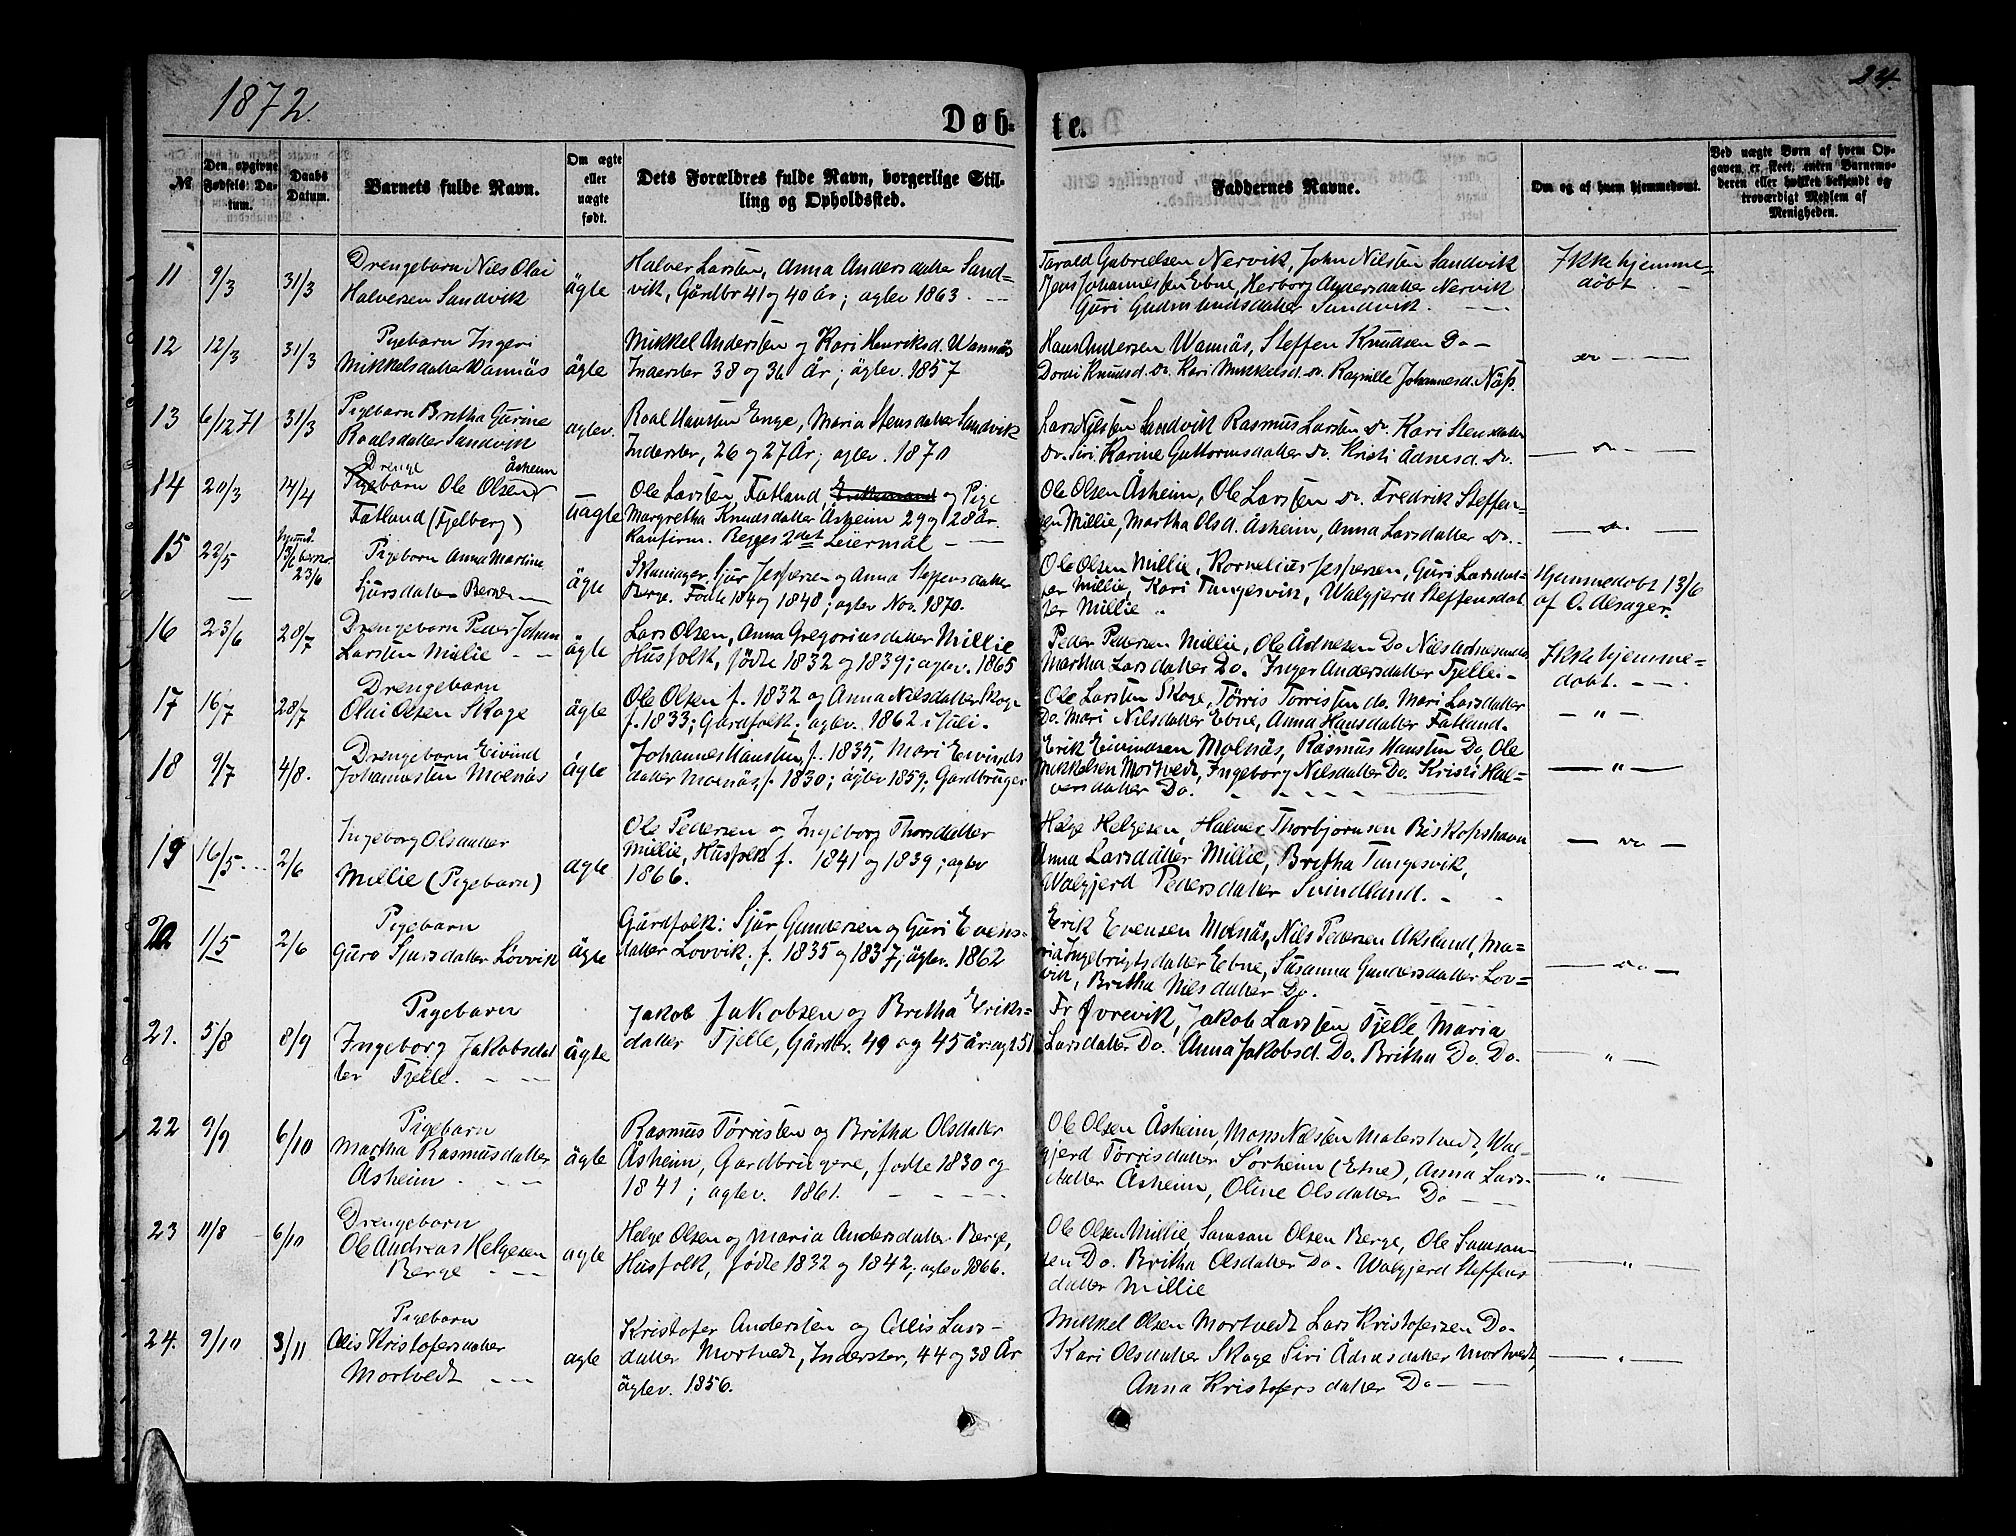 1872.
24.
Døb-
te.
№
Den opgivne Fødsels-Datum.
Daabs Datum.
Barnets fulde Navn.
Om ægte eller uægte født.
Dets Forældres fulde Navn, borgerlige Stilling og Opholdssted.
Faddernes Navne.
Om og af hvem hjemmedøbt.
Ved uægte Børn af hvem Opgaven er skeet, enten Barnemoderen eller hvilket bekjendt og troværdigt Medlem af Menigheden.
11 9/3 31/3
Drengebarn Nils Olai
Halversen Sandvik
ägte
Halver Larsen, Anna Andersdatter Sand=
vik, Gårdbr 41 og 40 år; ægtev 1863.
Tarald Gabrielsen Nervik, John Nilsen Sandvik
Jens Johannessen Ebne, Herborg Andersdatter Nervik
Guri Gudmundsdatter Sandvik.
Ikke hjemme=
döbt.
12 12/3 31/3
Pigebarn Ingeri
Mikkelsdatter Vannäs
ägte
Mikkel Andersen og Kari Henriksd. Wannäs
Inderster 38 og 36 år; ägtev. 1857
Hans Andersen Wannäs, Steffen Knudsen Do
Dordi Knudsd. Do. Kari Mikkelsd. Do. Ragnille Johannesd. Näss.
Do
13 6/12 71 31/3
Pigebarn Bretha Gurine
Roalsdatter Sandvik
ægtev.
Roal Hansen Enge, Maria Stensdatter Sandvik
Inderster, 26 og 27 År; ægtev. 1870
Lars Nilsen Sandvik Rasmus Larsen Do. Kari Stensdatter
Do. Siri Karine Guttormsdatter Do. Kristi Ådnesd. Do.
Do
14 20/3 14/4
Drenge Åsheim
Pigebarn Ole Olsen
Fatland (Fjelberg)
uægte
Ole Larsen, Fatland, Enkemand og Pige
Margretha Knudsdatter Åsheim 29 og 28 år.
Konfirm. Begges 2det Leiermål
Ole Olsen Åsheim, Ole Larsen Do. Fredrik Steffen-
sen Millie, Martha Olsd. Åsheim, Anna Larsdatter Do.
Do.
15 22/5 23/6
Pigebarn Anna Martine
Sjursdatter Berge
ägte
Skomager Sjur Jespersen og Anna Steffensdatter
Berge. Födte 184 og 1848; ægtev Nov. 1870.
Ole Olsen Millie, Kornelius Jespersen, Guri Larsdat-
ter Millie, Kari Tungesvik, Walgjerd Steffensdat
ter Millie
Hjemmedöbt 13/6
af O. Alsager.
16 23/6 28/7
Drengebarn Peder Johan
Larsen Millie
ägte
Lars Olsen, Anna Gregoriusdatter Millie
Husfolk, födte 1832 og 1839; ægtev. 1865
Peder Pedersen Millie, Ole Ådnesen Do
Martha Larsdatter Do. Inger Andersdatter Tjelle
Ikke hjemme=
döbt.
17 16/7 28/7
Drengebarn
Olai Olsen Skoge
ägte
Ole Olsen f. 1832 og Anna Nilsdatter Skoge
f. 1833; Gårdfolk, ægtev. 1862 i Juli.
Ole Larsen Skoge, Törris Torrisen do. Mari Larsdatter
Do. Mari Nilsdatter Ebne, Anna Hansdatter Fatland.
"
18 9/7 4/8.
Drengebarn Eivind
Johannesen Molnäs
ägte
Johannes Hansen f. 1835, Mari Eivinds
datter Molnäs f. 1830; ägtev 1859; Gardbruger
Erik Eivindsen Molnäs, Rasmus Hansen Do, Ole
Mikkelsen Mortvedt, Ingeborg Nilsdatter Do. Kristi Hal=
versdatter Do.
"
19 16/5 2/6
Ingeborg Olsdatter
Millie (Pigebarn)
ægte
Ole Pedersen og Ingeborg Thorsdatter
Millie, Husfolk f. 1841 og 1839; ægtev
1866.
Helge Helgesen, Halver Thorbjornsen Biskopshavn
Anna Larsdatter Millie, Britha Tungesvik,
Walgjerd Pedersdatter Svindland.
Do
20 1/5 2/6
Pigebarn
Guro Sjursdatter Lovvik
ägte
Gårdfolk: Sjur Gundersen og Guri Evens-
datter Lovvik, f. 1835 og 1837; ägtev. 1862
Erik Evensen Molnäs, Nils Pedersen Aksland, Ma=
ria Ingebrigtsdatter Ebne, Susanna Gundersdatter Lov=
vik, Britha Nilsdatter Do.
Do
21. 5/8 8/9
Pigebarn
Ingeborg Jakobsdat
ter Tjelle.
ägte
Jakob Jakobsen og Bretha Eriks=
datter Tjelle, Gårdbr. 49 og 45 år
Fr Övrevik, Jakob Larsen Tjelle, Maria
Larsdatter Do. Anna Jakobsd. Do. Britha Do. Do.
"
22 9/9 6/10
Pigebarn
Martha Rasmusdatter
Åsheim
ägte
Rasmus Törrisen og Britha Olsdatter
Åsheim, Gardbrugere, födte 1830 og
1841; ægtev. 1861.
Ole Olsen Åsheim, Mons Nilsen Matersvedt, Wal-
gjerd Törrisdatter Sörheim (Etne), Anna Lars-
datter Åsheim, Oline Olsdatter Do
"
23 11/8 6/10
Drengebarn
Ole Andreas Helgesen
Berge
ægte
Helge Olsen og Maria Andersdatter Berge,
Husfolk, födte 1832 og 1842; ægtev 1866.
Ole Olsen Millie, Samson Olsen Berge, Ole Samson-
sen Do. Britha Olsdatter Do. Walgjerd Steffens
datter Millie
"
24. 9/10 3/11
Pigebarn
Alis Kristofersdatter
Mortvedt
ægte
Kristofer Andersen og Allis Lars-
datter Mortvedt, Inderster, 44 og 38 År
ägtev. 1856.
Mikkel Olsen Mortvedt Lars Kristofersen Do
Kari Olsdatter Skoge Siri Ådnesdatter Mortvedt,
Anna Kristofersdatter Do
"